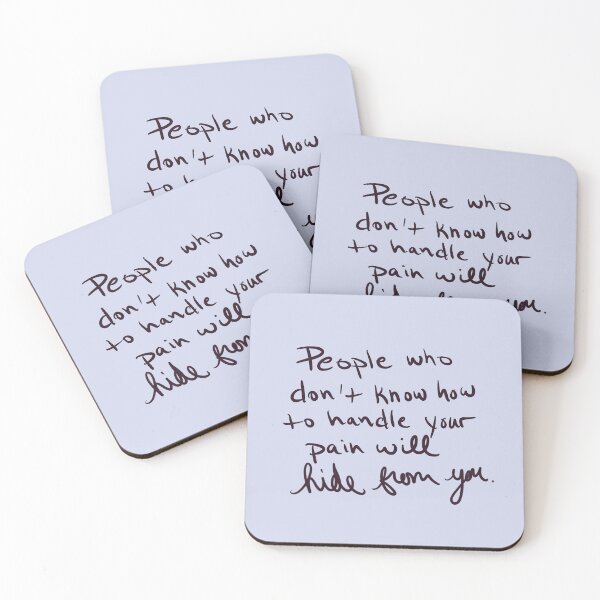 People who
don't know how
to your
People who
don't know how
to handle your
pain will
hide from you.
People who
don't know how
to handle your
pain will
hide from
People who
don't know how
to handle your
pain will
hide from you.